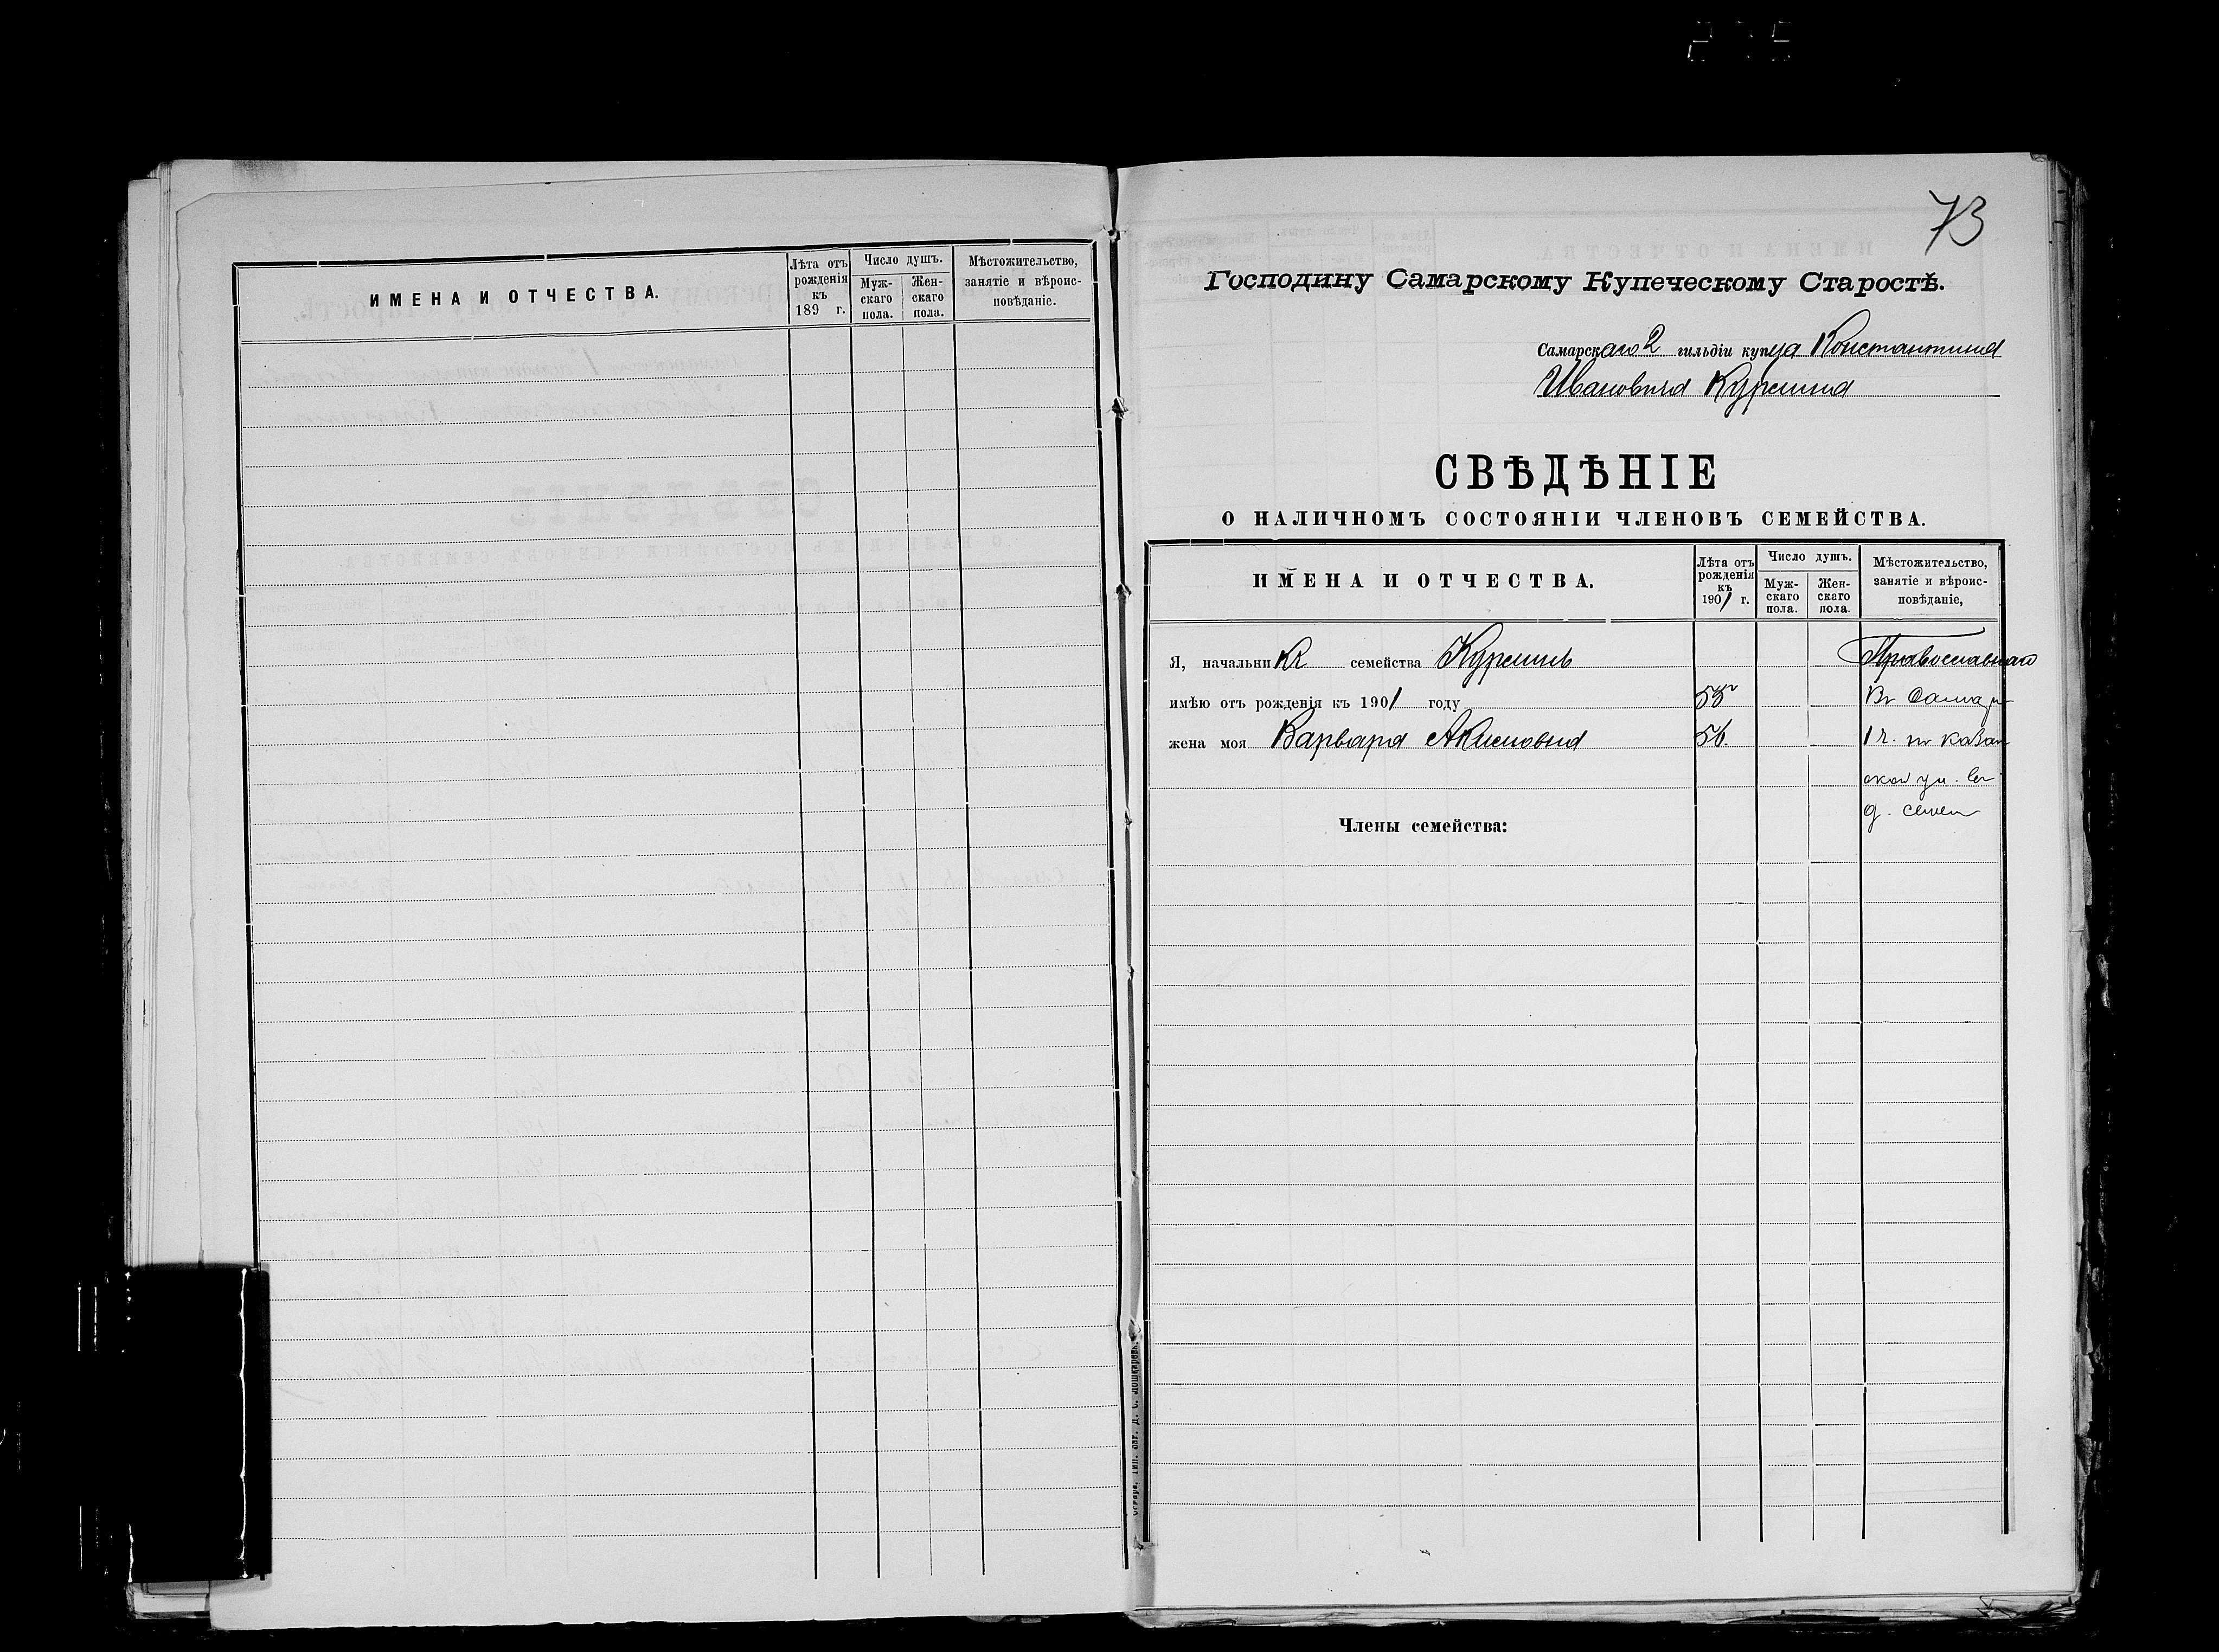 ИМЕНА И ОТЧЕСТВА.
Лѣта отъ рожденія къ 189 г.
Число душъ.
Мужскаго пола.
Женскаго пола.
Мѣстожительство, занятіе и вѣроисповѣданіе.
73
Господину Самарскому Купеческому Старостѣ.
Самарскаго 2 гильдіи купца Константина
Ивановича Куркина
СВѢДѢНІЕ
О НАЛИЧНОМЪ СОСТОЯНІИ ЧЛЕНОВЪ СЕМЕЙСТВА.
ИМЕНА И ОТЧЕСТВА.
Лѣта отъ рожденія къ 1901 г.
Число душъ.
Мужскаго пола.
Женскаго пола.
Мѣстожительство, занятіе и вѣроисповѣданіе,
Я, начальникъ семейства Православная
имѣю отъ рожденія къ 1901 году 55 Въ Самарѣ
жена моя Варвара Акимовна 56. 1 ч. по Казан
ской ул. въ
д.
Члены семейства:
Самара, Тип. нас. Д. С. Лошкаревъ.